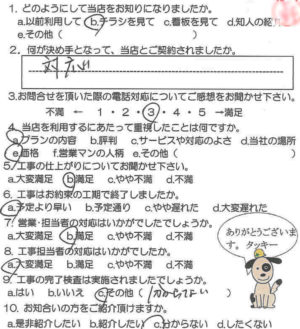 1. どのようにして当店をお知りになりましたか。
a.以前利用して b.チラシを見て c.看板を見て d.知人の紹
e.その他( )
2. 何が決め手となって、当店とご契約されましたか。
対応
3.お問合せを頂いた際の電話対応についてご感想をお聞かせ下さい。
不満 ← 1・2・3・4・5 →満足
4. 当店を利用するにあたって重視したことは何ですか。
a.プランの内容 b.評判 c.サービスや対応のよさ d.当社の場所
e.価格 f.営業マンの人柄 e.その他(
5. 工事の仕上がりについてお聞かせ下さい。
a.大変満足 b.満足 c.やや不満 d.不満
6. 工事はお約束の工期で終了しましたか。
a.予定より早い b.予定通り c.やや遅れた d.大変遅れた
7. 営業・担当者の対応はいかがでしたでしょうか。
a.大変満足 b.満足 c.やや不満 d.不満
ありがとうございま
す。 タッキー
8. 工事担当者の対応はいかがでしたか。
a.大変満足 b.満足 c.やや不満 d.不満
9. 工事の完了検査は実施されましたでしょうか。
a.はい b.いいえ c.その他(
10. お知合いの方をご紹介頂けますか。
a.是非紹介したい b.紹介したい c.分からない d.したくない